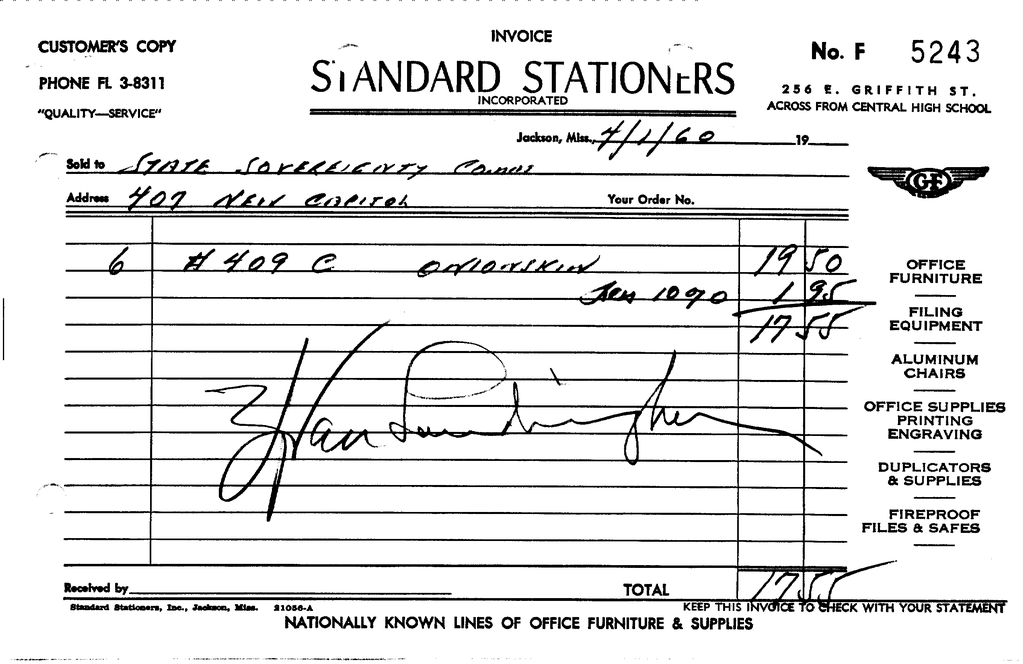 CUSTOMER'S COPY
PHONE FL 3-8311
"QUALITY—SERVICE"
INVOICE
STANDARD STATIONERS
INCORPORATED
No. F 5243
256 E. GRIFFITH ST.
ACROSS FROM CENTRAL HIGH SCHOOL
Jackson, Miss., 4/1/60 19
Sold to STATE SOVEREIGNTY Comm
Address 407 NEW CAPITOL Your Order No.
GF
6 # 409 C ONIONSKIN 19 50
Less 10% 1 95
17 55
OFFICE
FURNITURE
FILING
EQUIPMENT
ALUMINUM
CHAIRS
OFFICE SUPPLIES
PRINTING
ENGRAVING
DUPLICATORS
& SUPPLIES
FIREPROOF
FILES & SAFES
Received by TOTAL 17 55
Standard Stationers, Inc., Jackson, Miss. 21056-A
KEEP THIS INVOICE TO CHECK WITH YOUR STATEMENT
NATIONALLY KNOWN LINES OF OFFICE FURNITURE & SUPPLIES